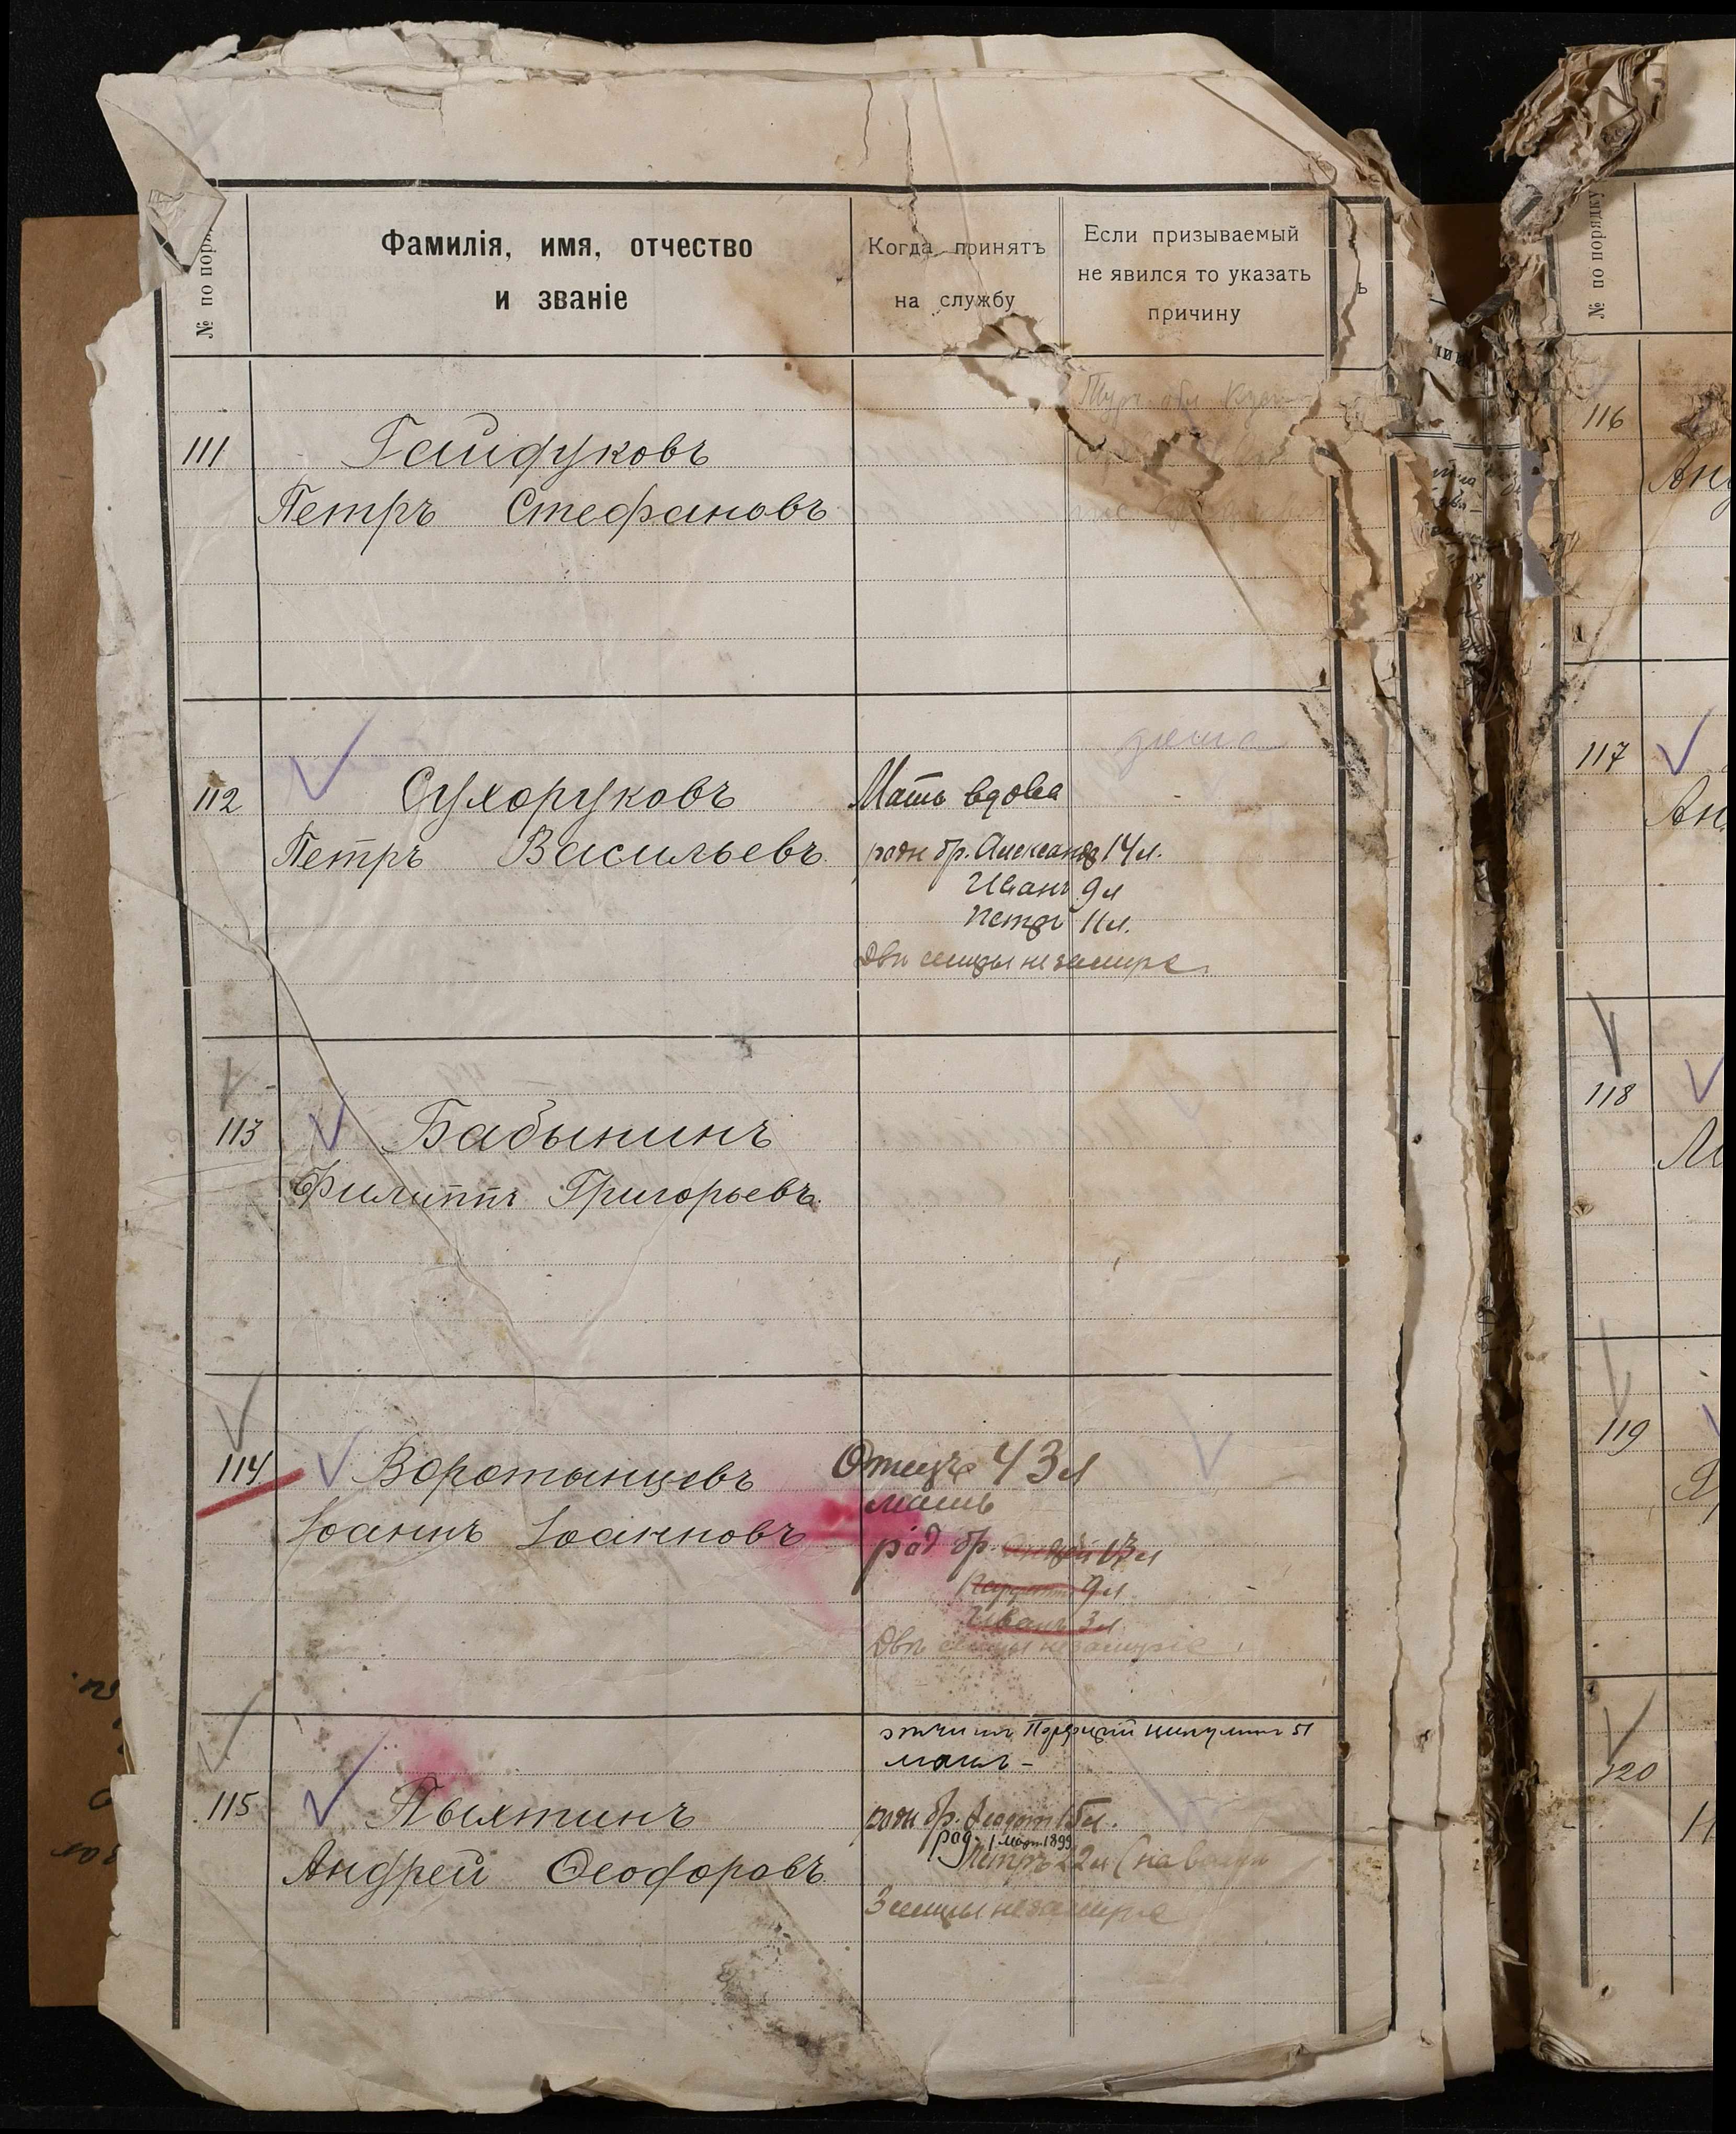 № по поряд
Фамилія, имя, отчество
и званіе
Когда принятъ
на службу
Если призываемый
не явился то указать
причину
ъ
111
Гайдуковъ
Петръ Стефановъ
112
Сухоруковъ
Петръ Васильевъ
Мать вдова
родн бр. Александр 14 л.
Иванъ 9 л
Петръ 11 л.
Двѣ сестры незамуж.
113
Бабынинъ
Филиппъ Григорьевъ
114
Воротынцевъ
Іоаннъ Іоанновъ
Отецъ 43 л
мать
род бр. 13 л
9 л
Иванъ 3 л
Двѣ сестры незамужіе
115
Пыхтинъ
Андрей Ѳеодоровъ
отчимъ 51
мать -
родн бр. Федот 15 л.
род. 1 март 1899
Петръ 22 л (на
3 сестры незамужіе
№ по порядку
116
Анд
117
Ан
118
119
120